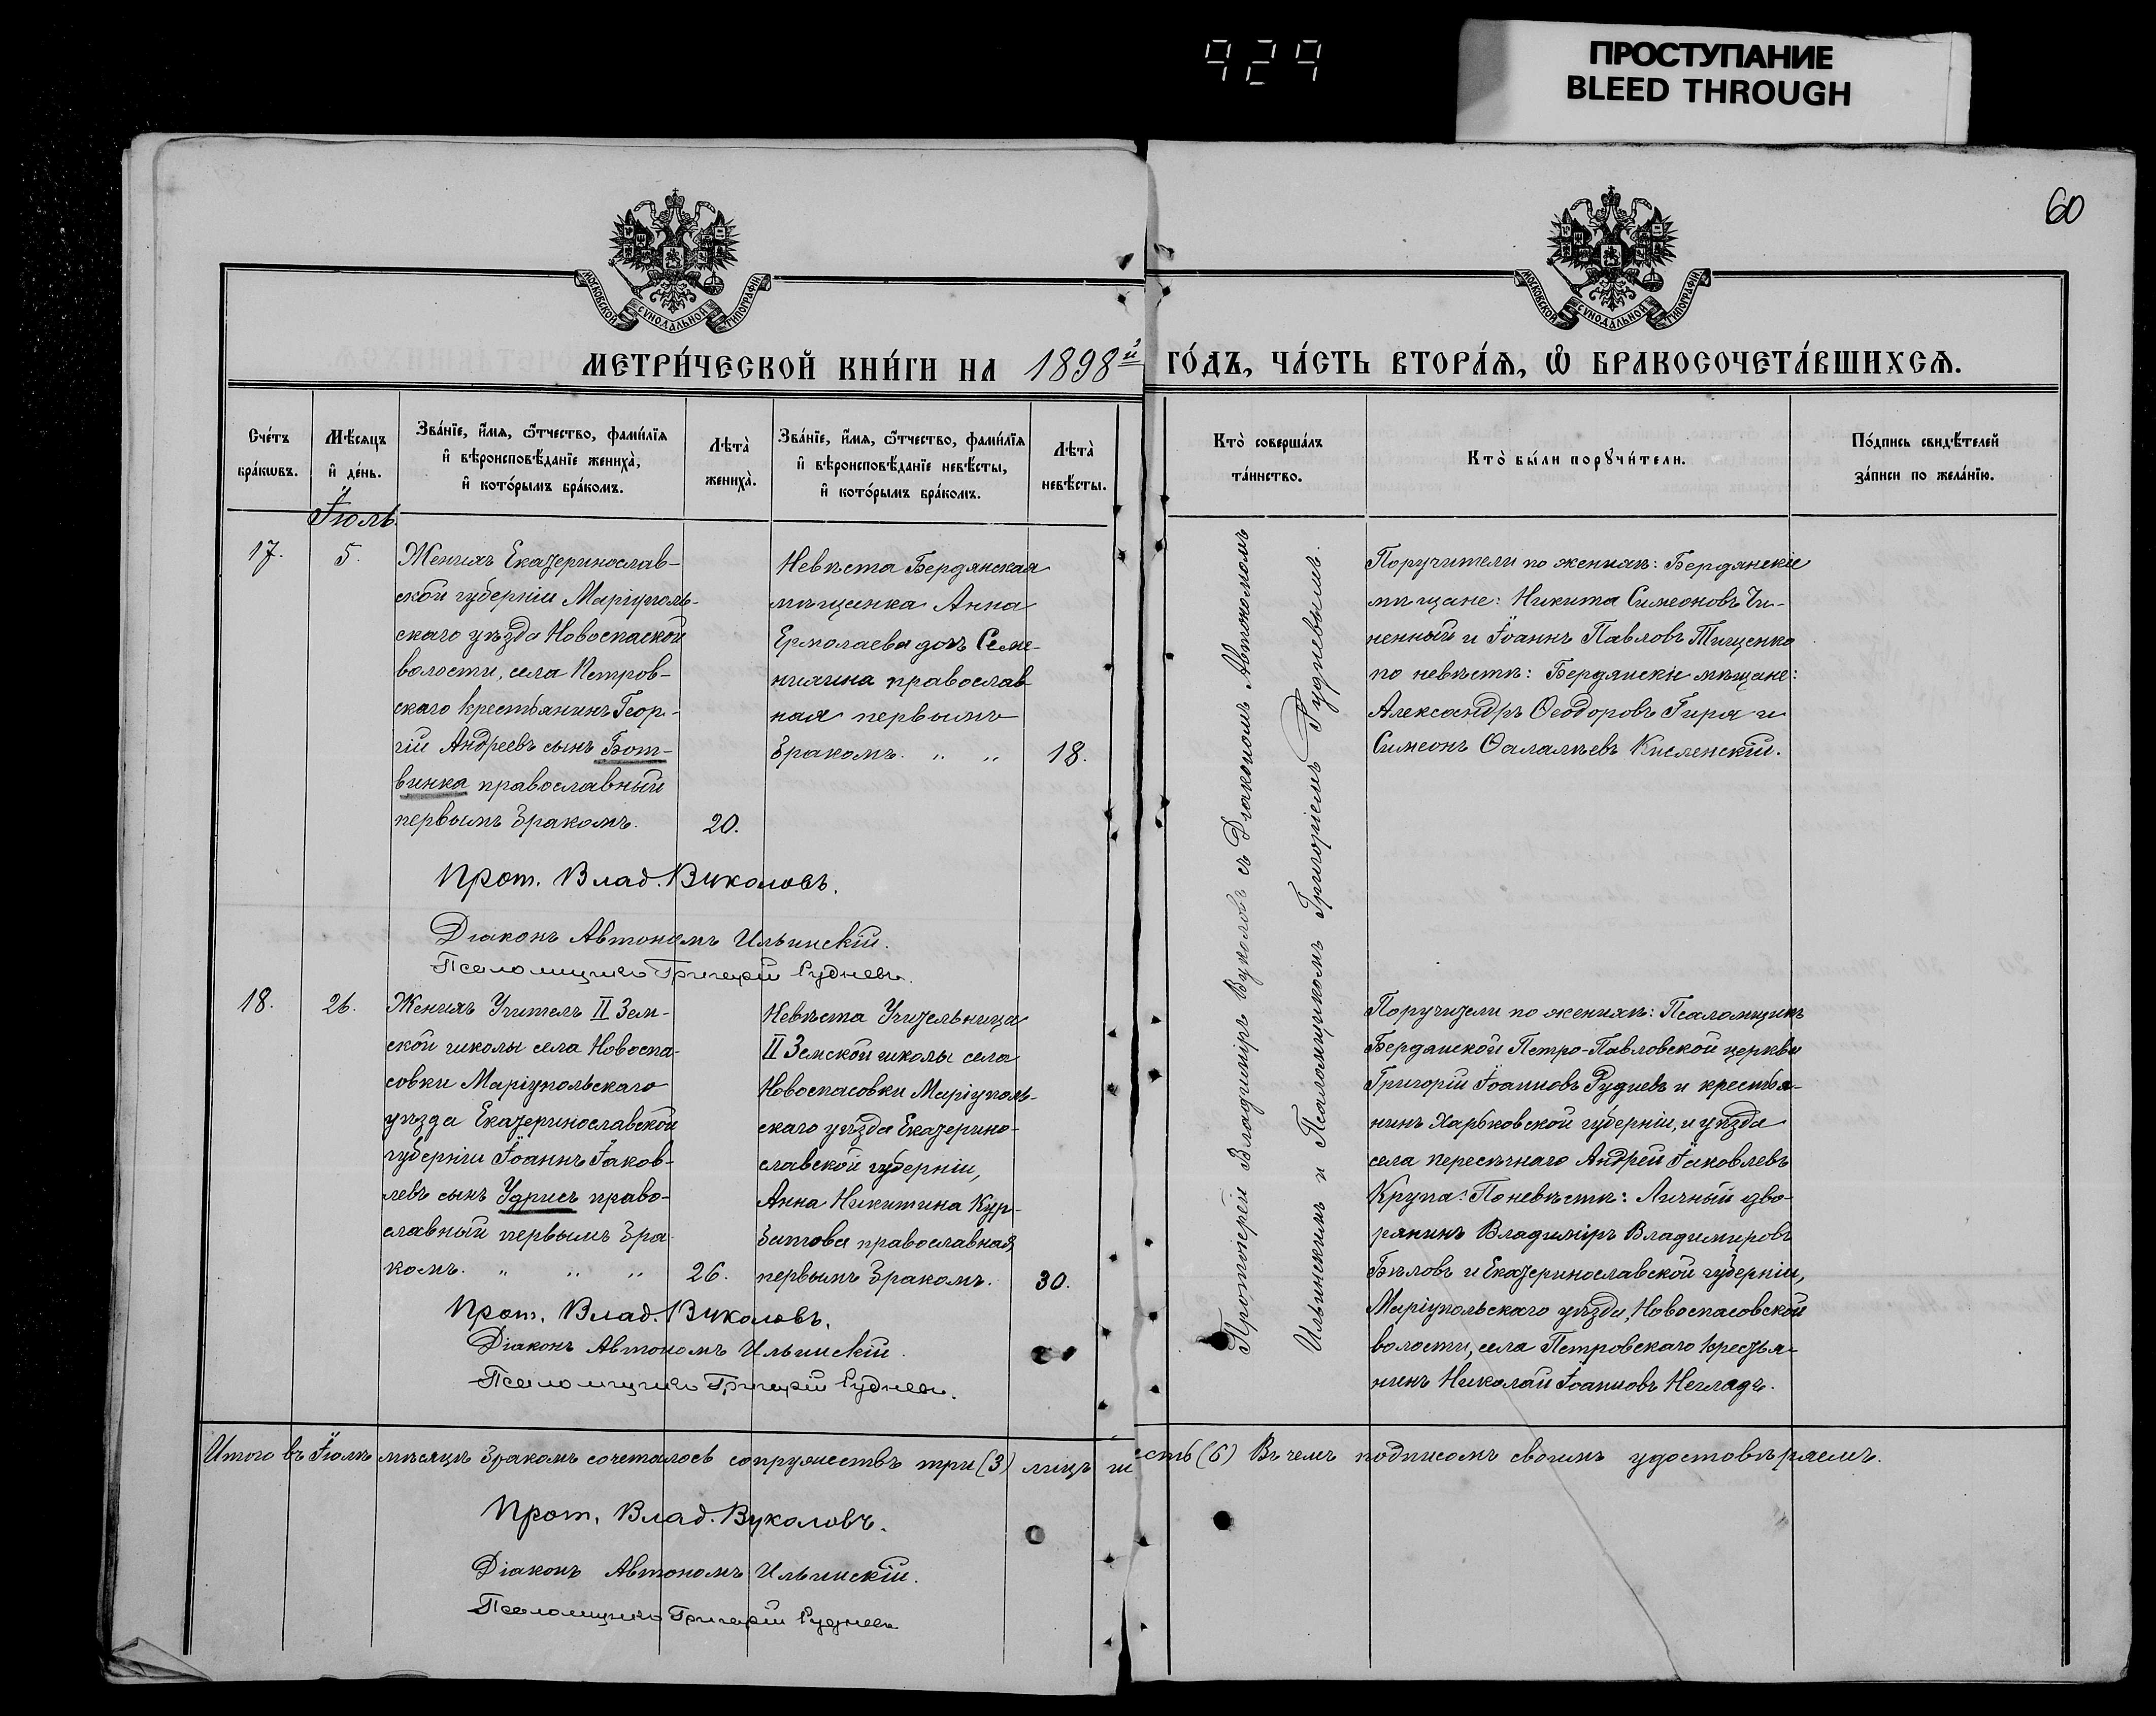 929
ПРОСТУПАНИЕ
BLEED THROUGH
60
МОСКОВСКОЙ СѴНОДАЛЬНОЙ ТИПОГРАФІИ
МОСКОВСКОЙ СѴНОДАЛЬНОЙ ТИПОГРАФІИ
МЕТРИ́ЧЕСКОЙ КНИ́ГИ НА 1898й ГО́ДЪ, ЧА́СТЬ ВТОРА́Ѧ, Ѽ БРАКОСОЧЕТА́ВШИХСѦ.
Сче́тъ
бра́кѡвъ.
Мѣ́сяцъ
и҆ де́нь.
Зва́нїе, и҆́мя, ѻ҆́тчество, фами́лїя
и҆ вѣроисповѣ́данїе жениха̀,
и҆ кото́рымъ бра́комъ.
Лѣта̀
жениха̀.
Зва́нїе, и҆́мя, ѻ҆́тчество, фами́лїя
и҆ вѣроисповѣ́данїе невѣ́сты,
и҆ кото́рымъ бра́комъ.
Лѣта̀
невѣ́сты.
Кто̀ соверша́лъ
та́инство.
Кто̀ бы́ли порꙋчи́тели.
По́дпись свидѣ́телей
за́писи по жела́нїю.
Іюль
17.
5.
Женихъ Екатеринослав-
ской губерніи Маріуполь-
скаго уѣзда Новоспаской
волости, села Петров-
скаго крестьянинъ Геор-
гій Андреевъ сынъ Бот-
винка православный
первымъ бракомъ.
20.
Невѣста Бердянская
мѣщанка Анна
Ермолаева дочь Семе-
нихина православ
ная первымъ
бракомъ. " "
18.
Протоіерей Владиміръ Вуколовъ съ Діакономъ Автономомъ
Ильинскимъ и Псаломщикомъ Григоріемъ Рудневымъ.
Поручители по женихѣ: Бердянскіе
мѣщане: Никита Симеоновъ Чи-
ненный и Іоаннъ Павловъ Тищенко
по невѣстѣ: Бердянскіе мѣщане:
Александръ Ѳеодоровъ Гиря и
Симеонъ Кисленскій.
Прот. Влад. Вуколовъ.
Діаконъ Автономъ Ильинскій.
Псаломщикъ Григорій Рудневъ.
18.
26.
Женихъ Учитель II Зем-
ской школы села Новоспа-
совки Маріупольскаго
уѣзда Екатеринославской
губерніи Іоаннъ Іаков-
левъ сынъ Удрисъ право-
славный первымъ бра-
комъ. " " "
26.
Невѣста Учительница
II Земской школы села
Новоспасовки Маріуполь-
скаго уѣзда Екатерино-
славской губерніи,
Анна Никитина Кур-
батова православная
первымъ бракомъ.
30.
Поручители по женихѣ: Псаломщикъ
Бердянской Петро-Павловской церкви
Григорій Іоанновъ Рудневъ и крестья-
нинъ Харьковской губерніи, и уѣзда
села Пересѣчнаго Андрей Іаковлевъ
Крупа: По невѣстѣ: Личный дво-
рянинъ Владиміръ Владимировъ
Бѣловъ и Екатеринославской губерніи,
Маріупольскаго уѣзда, Новоспасовской
волости, села Петровскаго крестья-
нинъ Николай Іоанновъ Негладъ.
Прот. Влад. Вуколовъ.
Діаконъ Автономъ Ильинскій.
Псаломщикъ Григорій Рудневъ.
Итого въ Іюлѣ мѣсяцѣ бракомъ сочеталось супружествъ три (3) лицъ шесть (6) Въ чемъ подписомъ своимъ удостовѣряемъ.
Прот. Влад. Вуколовъ.
Діаконъ Автономъ Ильинскій.
Псаломщикъ Григорій Рудневъ